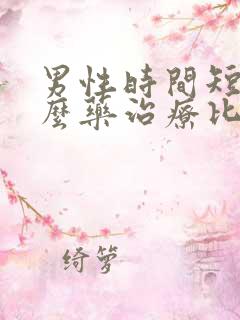 男性時間短
麼藥治療比
綺夢